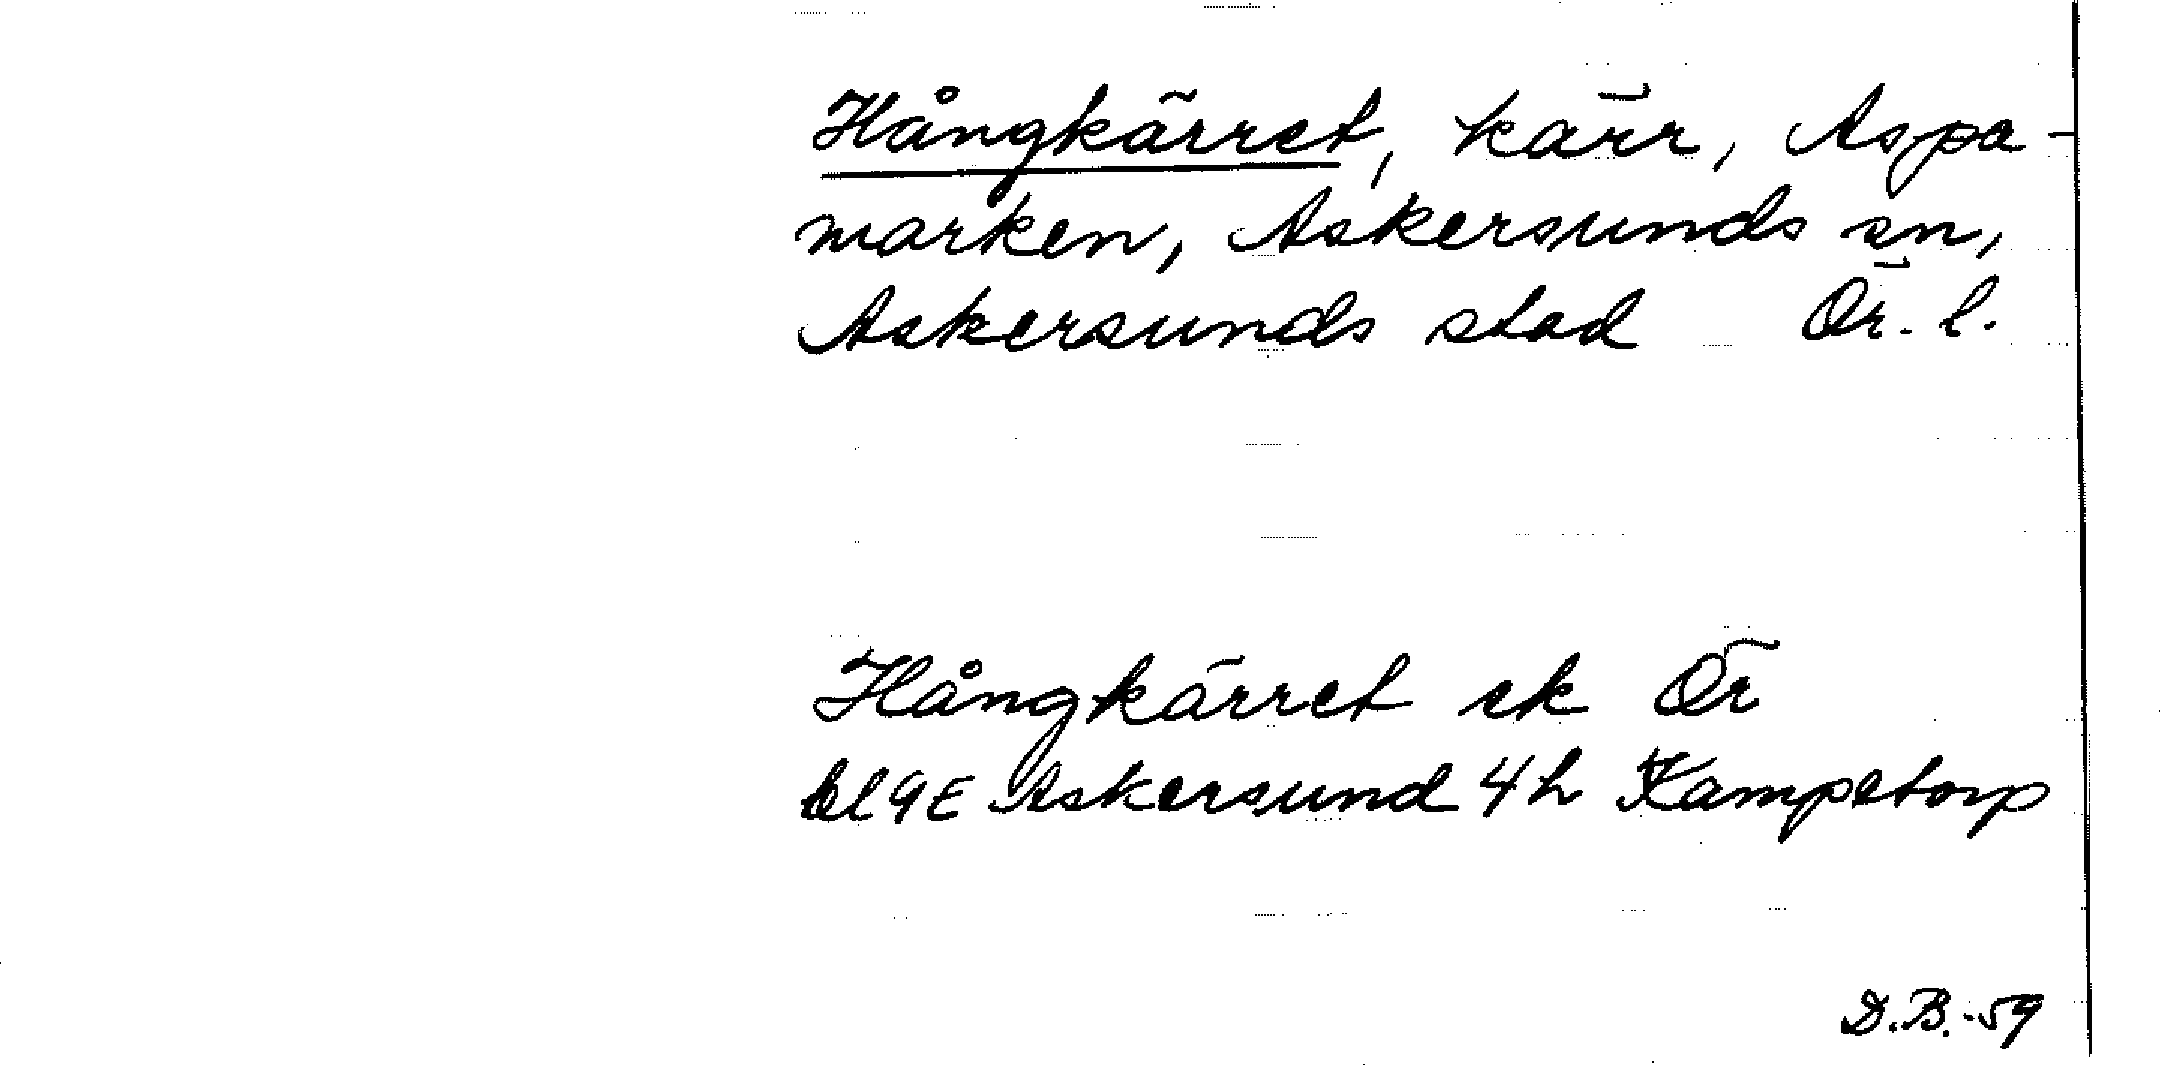 Hångkärret, kärr, Aspa-
marken, Askersunds sn,
Askersunds stad Ör. l.
Hångkärret ek Ör
bl 9E Askersund 4h Kampetorp
D.B.-59